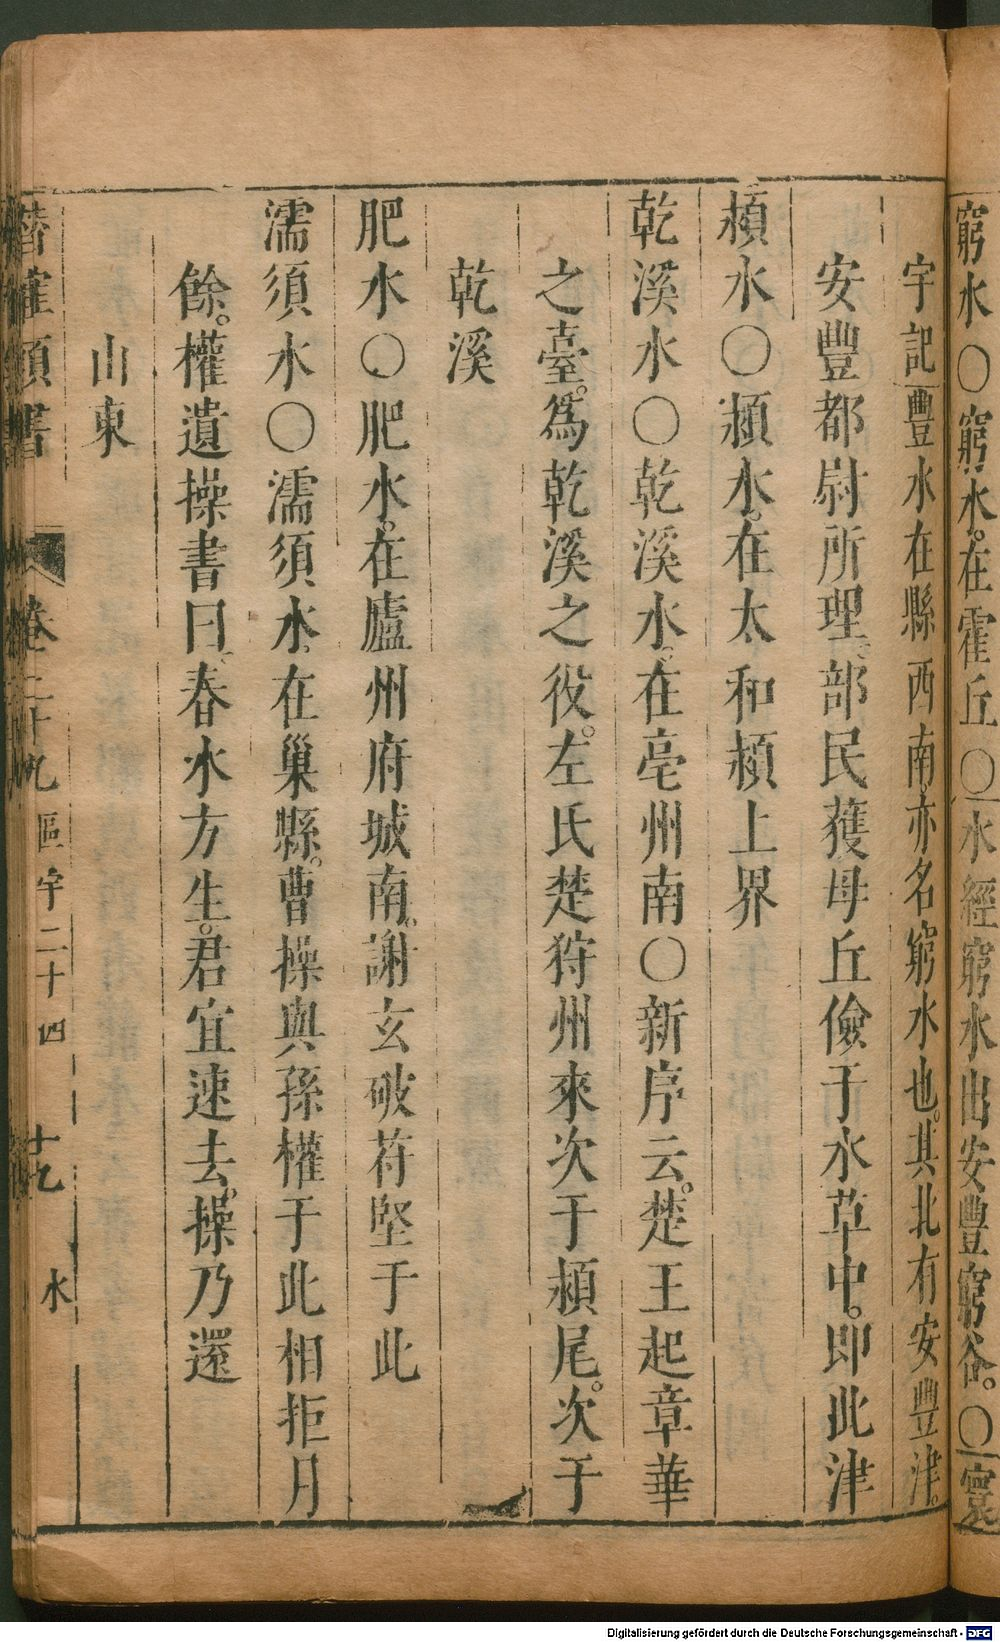 窮水○窮水。在霍丘○水經窮水出安豐窮谷。○寰
宇記豐水在縣西南亦名窮水也。其北有安豐津。
安豐都尉所理、部民獲母丘儉于水草中。即此津
潁水○潁水。在太和潁上界
乾溪水○乾溪水。在亳州南○新序云。楚王起章華
之臺。為乾溪之役。左氏楚狩州來次于潁尾。次于
乾溪
肥水○肥水。在廬州府城南。謝玄破苻堅于此
濡須水○濡須水。在巢縣。曹操與孫權于此相拒月
餘。權遺操書曰、春水方生。君宜速去。操乃還
山東
潛確類書 卷二十九 區宇二十四 十九 水
Digitalisierung gefördert durch die Deutsche Forschungsgemeinschaft - DFG